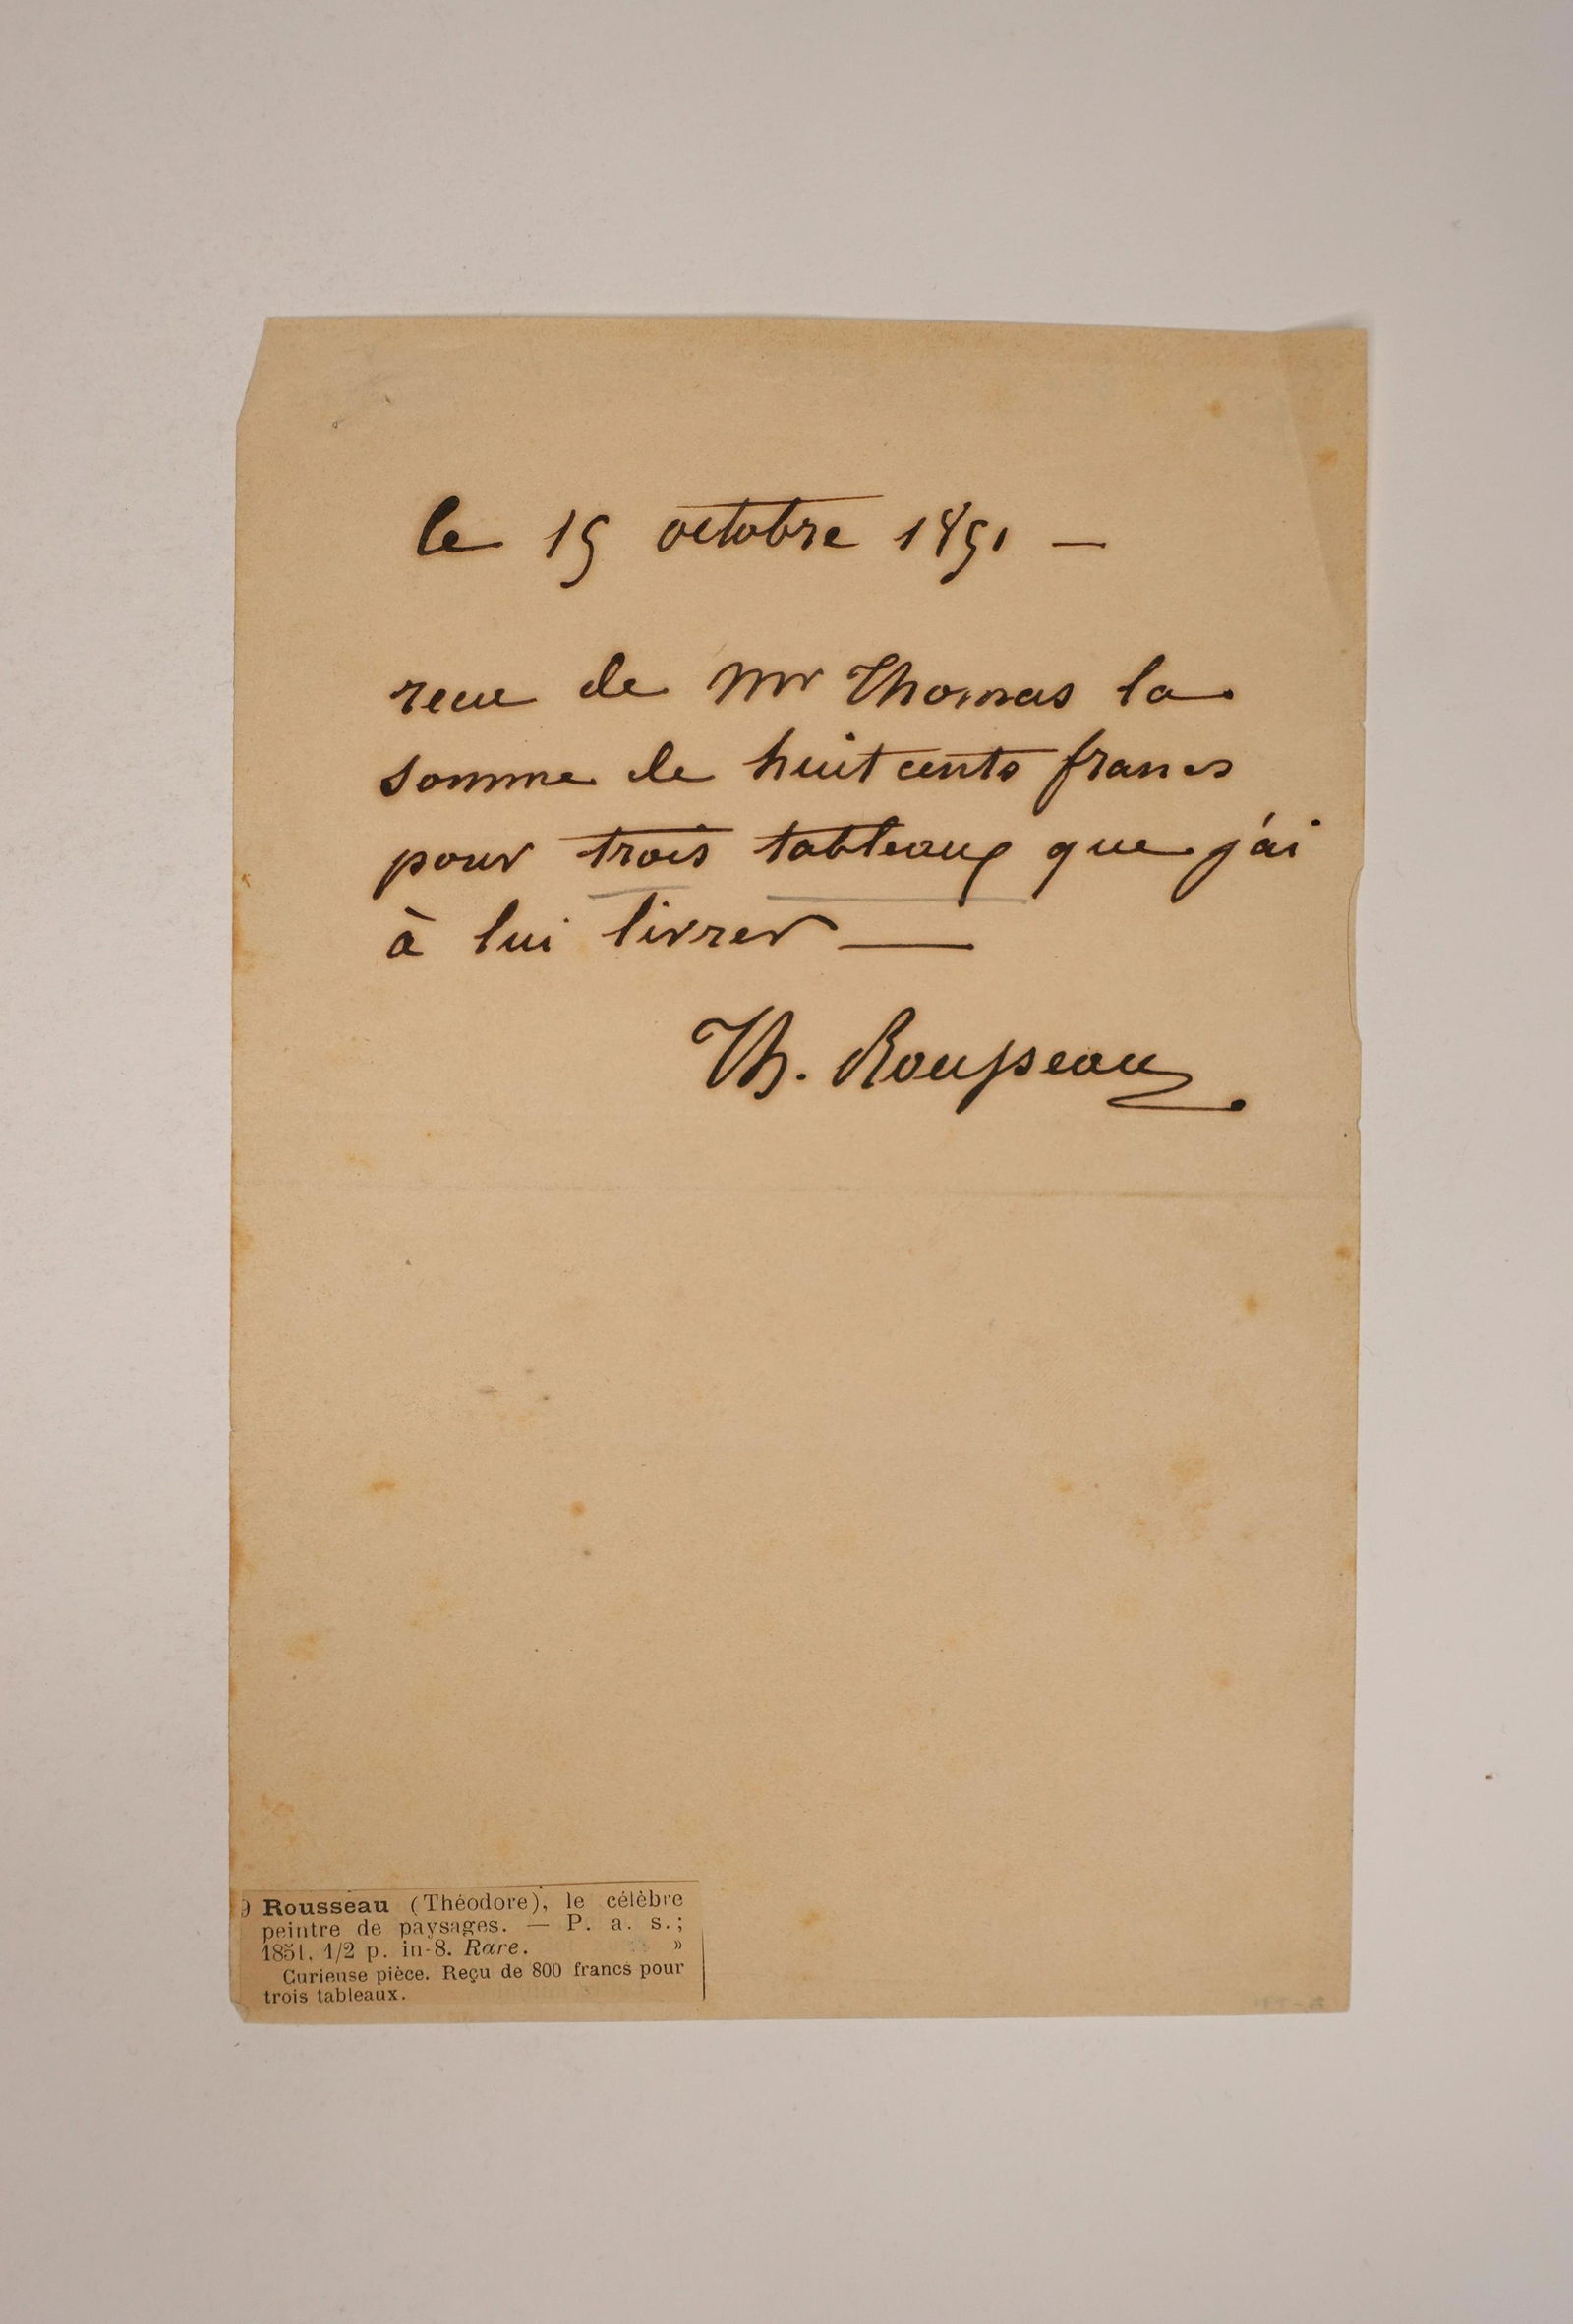 le 15 octobre 1851 —
recue de Mr Thomas la
somme de huit cents francs
pour trois tableaux que j'ai
à lui livrer —
Th. Rousseau
9 Rousseau (Théodore), le célèbre
peintre de paysages. — P. a. s.;
1851, 1/2 p. in-8. Rare. »
Curieuse pièce. Reçu de 800 francs pour
trois tableaux.